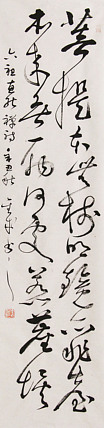 菩提本無樹明鏡亦非臺
本來無一物何處惹塵埃
六祖惠能禪詩辛丑秋
書